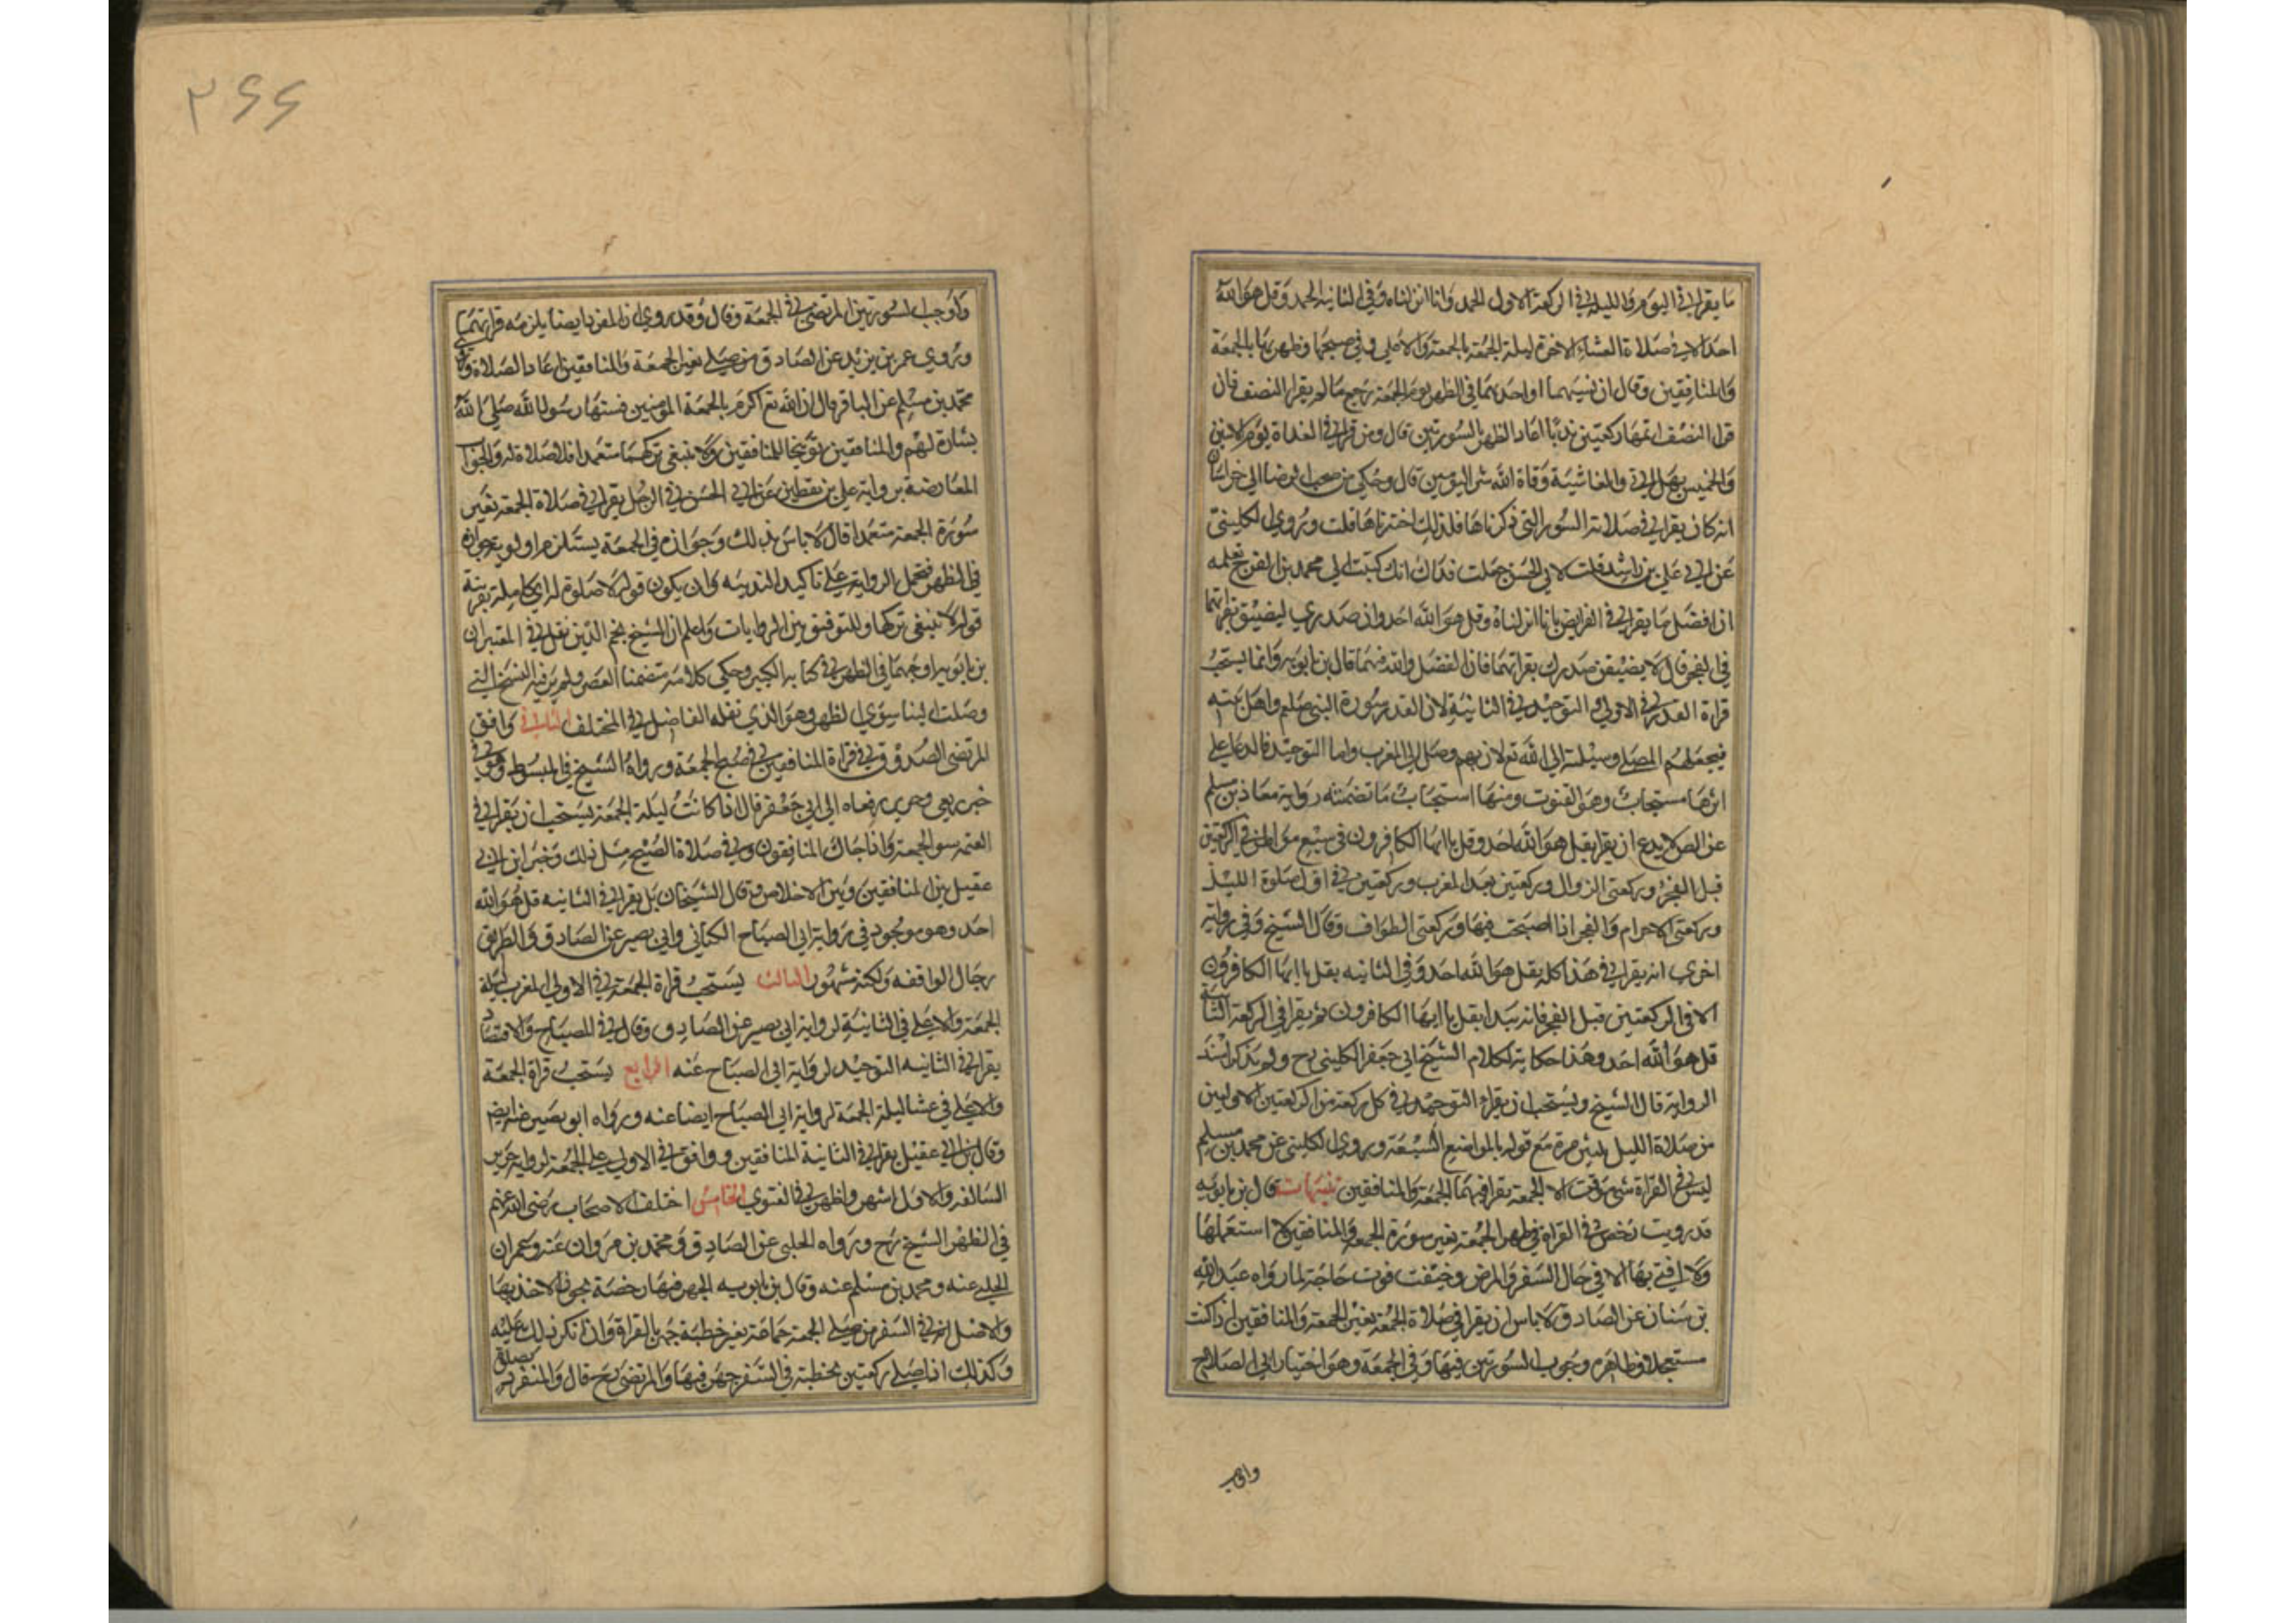 ما يقرا في اليوم والليله في الركعة الاولى الحمد وانا انزلناه وفي الثانيه الحمد وقل هو الله
احد الا في صلاة العشاء الاخرة ليلة الجمعة بالجمعة والاعلى وفي صبحها وظهرها بالجمعة
والمنافقين وقال ان نسيهما او احديهما في الظهر يوم الجمعة رجع ما لم يقرا النصف فان
قرا النصف اتمها ركعتين ندبا اعاد الظهر بالسورتين قال ومن قرا في الغداة يوم الاثنين
والخميس بهل اتي والغاشية وقاة الله شر اليومين قال وحكي من صحب الرضا الى خراسان
انه كان يقرا في صلاته السور التي ذكرناها فلذلك اخترناها قلت وروى الكليني
عن ابي علي بن راشد قلت لابي الحسن جعلت فداك انك كتبت الى محمد بن الفرج تعلمه
ان افضل ما يقرا في الفرايض بانا انزلناه وقل هو الله احد وان صدري ليضيق بقراتهما
في الفجر قال لا يضيقن صدرك بقراتهما فان الفضل والله فيهما قال بن بابويه وانما يستحب
قراة القدر في الاولى التوحيد في الثانية لان القدر سورة النبي صلعم واهل بيته
فيجعلهم المصلي وسيلة الى الله تع لان بهم وصل الى المغرب واما التوحيد فالدعا على
اثرها مستجاب وهو القنوت ومنها استحباب ما تضمنته رواية معاذ بن مسلم
عن الص لا يدع ان يقرا بقل هو الله احد وقل يا ايها الكافرون في سبع مواطن في الركعتين
قبل الفجر وركعتي الزوال وركعتين بعد المغرب وركعتين في اول صلوة الليل
وركعتي الاحرام والفجر اذا اصبحت فيها وركعتي الطواف وقال الشيخ وفي رواية
اخرى انه يقرا في هذا كله بقل هو الله احد وفي الثانيه بقل يا ايها الكافرون
الا في الركعتين قبل الفجر فانه يبدا بقل يا ايها الكافرون ثم يقرا في الركعة الثانية
قل هو الله احد وهذا حكاية لكلام الشيخ ابي جعفر الكليني رح ولم يذكر سند
الرواية قال الشيخ ويستحب ان يقراء التوحيد في كل ركعة من الركعتين الاوليين
من صلاة الليل ثلثين مرة مع قوله بالمواضع السبعة وروى الكليني عن محمد بن مسلم
ليس في القراة شي موقت الا الجمعة يقرا فيهما الجمعة والمنافقين تنبيهات قال بن بابويه
قد رويت رخص في القراة في ظهر الجمعة بغير سورة الجمعة والمنافقين لا استعملها
ولا افتي بها الا في حال السفر والمرض وخيفت فوت حاجة لما رواه عبد الله
بن سنان عن الصادق لا باس ان يقرا في صلاة الجمعة بغير الجمعة والمنافقين اذا كنت
مستعجلا وظاهره وجوب السورتين فيها وفي الجمعة وهو اختيار ابي الصلاح
۲۶۶
واوجب السورتين المرتضى في الجمعة وقال وقد روى ان المفرد ايضا يلزمه قراتهما
وروى عمر بن يزيد عن الصادق من صلى بغير الجمعة والمنافقين اعاد الصلاة
محمد بن مسلم عن الباقر قال ان الله تع اكرم بالجمعة المؤمنين فسنها رسول الله صلى الله
بشارة لهم والمنافقين توبيخا للمنافقين ولا ينبغي تركهما متعمدا فلا صلاة له والجواب
المعارضة برواية علي بن يقطين عن ابي الحسن في الرجل يقرا في صلاة الجمعة بغير
سورة الجمعة متعمدا قال لا باس بذلك وجوازه في الجمعة يستلزم اولويه جوازه
في الظهر فتحمل الرواية على تاكيد الندبيه وان يكون قوله لا صلوة له اي كاملة بقرينة
قوله لا ينبغي تركها وللتوفيق بين الروايات واعلم ان الشيخ نجم الدين نقل في المعتبر ان
بن بابويه اوجبهما في الظهر في كتابه الكبير وحكي كلامه متضمنا العصر ولم نر فيه النسخ التي
وصلت الينا سوى الظهر وهو الذي نقله الفاضل في المختلف الثاني وافق
المرتضى الصدوق في قراة المنافقين في صبح الجمعة ورواه الشيخ في المبسوط وهو في
خبر ربعي وحريز رفعاه الى ابي جعفر قال اذا كانت ليلة الجمعة يستحب ان يقرا في
العتمه سورة الجمعة واذا جاك المنافقون وفي صلاة الصبح مثل ذلك وخير ابن ابي
عقيل بين المنافقين وبين الاخلاص وقال الشيخان بل يقرا في الثانيه قل هو الله
احد وهو موجود في رواية ابي الصباح الكناني وابي بصير عن الصادق والطريق
رجال الواقفه ولكنه مشهور الثالث يستحب قراة الجمعة في الاولى المغرب ليلة
الجمعة والاعلى في الثانية لرواية ابي بصير عن الصادق وقال في المصباح والاقتصاد
يقرا في الثانيه التوحيد لرواية ابي الصباح عنه الرابع يستحب قراة الجمعة
والاعلى في عشا ليلة الجمعة لرواية ابي الصباح ايضا عنه ورواه ابو بصير عنه ايضا
وقال بن ابي عقيل يقرا في الثانية المنافقين ووافق في الاولى على الجمعة لرواية حريز
السالفة والاول اشهر واظهر في الفتوى الخامس اختلف الاصحاب رضي الله عنهم
في الظهر الشيخ رح ورواه الحلبي عن الصادق ومحمد بن مروان عنه وعمران
الحلبي عنه ومحمد بن مسلم عنه وقال بن بابويه الجهر فيها رخصة يجوز الاخذ بها
والاصل انه في السفر من صلى الجمعة جماعة بغير خطبة جهر بالقراة وان انكر ذلك عليه
وكذلك اذا صلى ركعتين بخطبة في السفر جهر فيها والمرتضى رح قال والمنفرد بصلاة